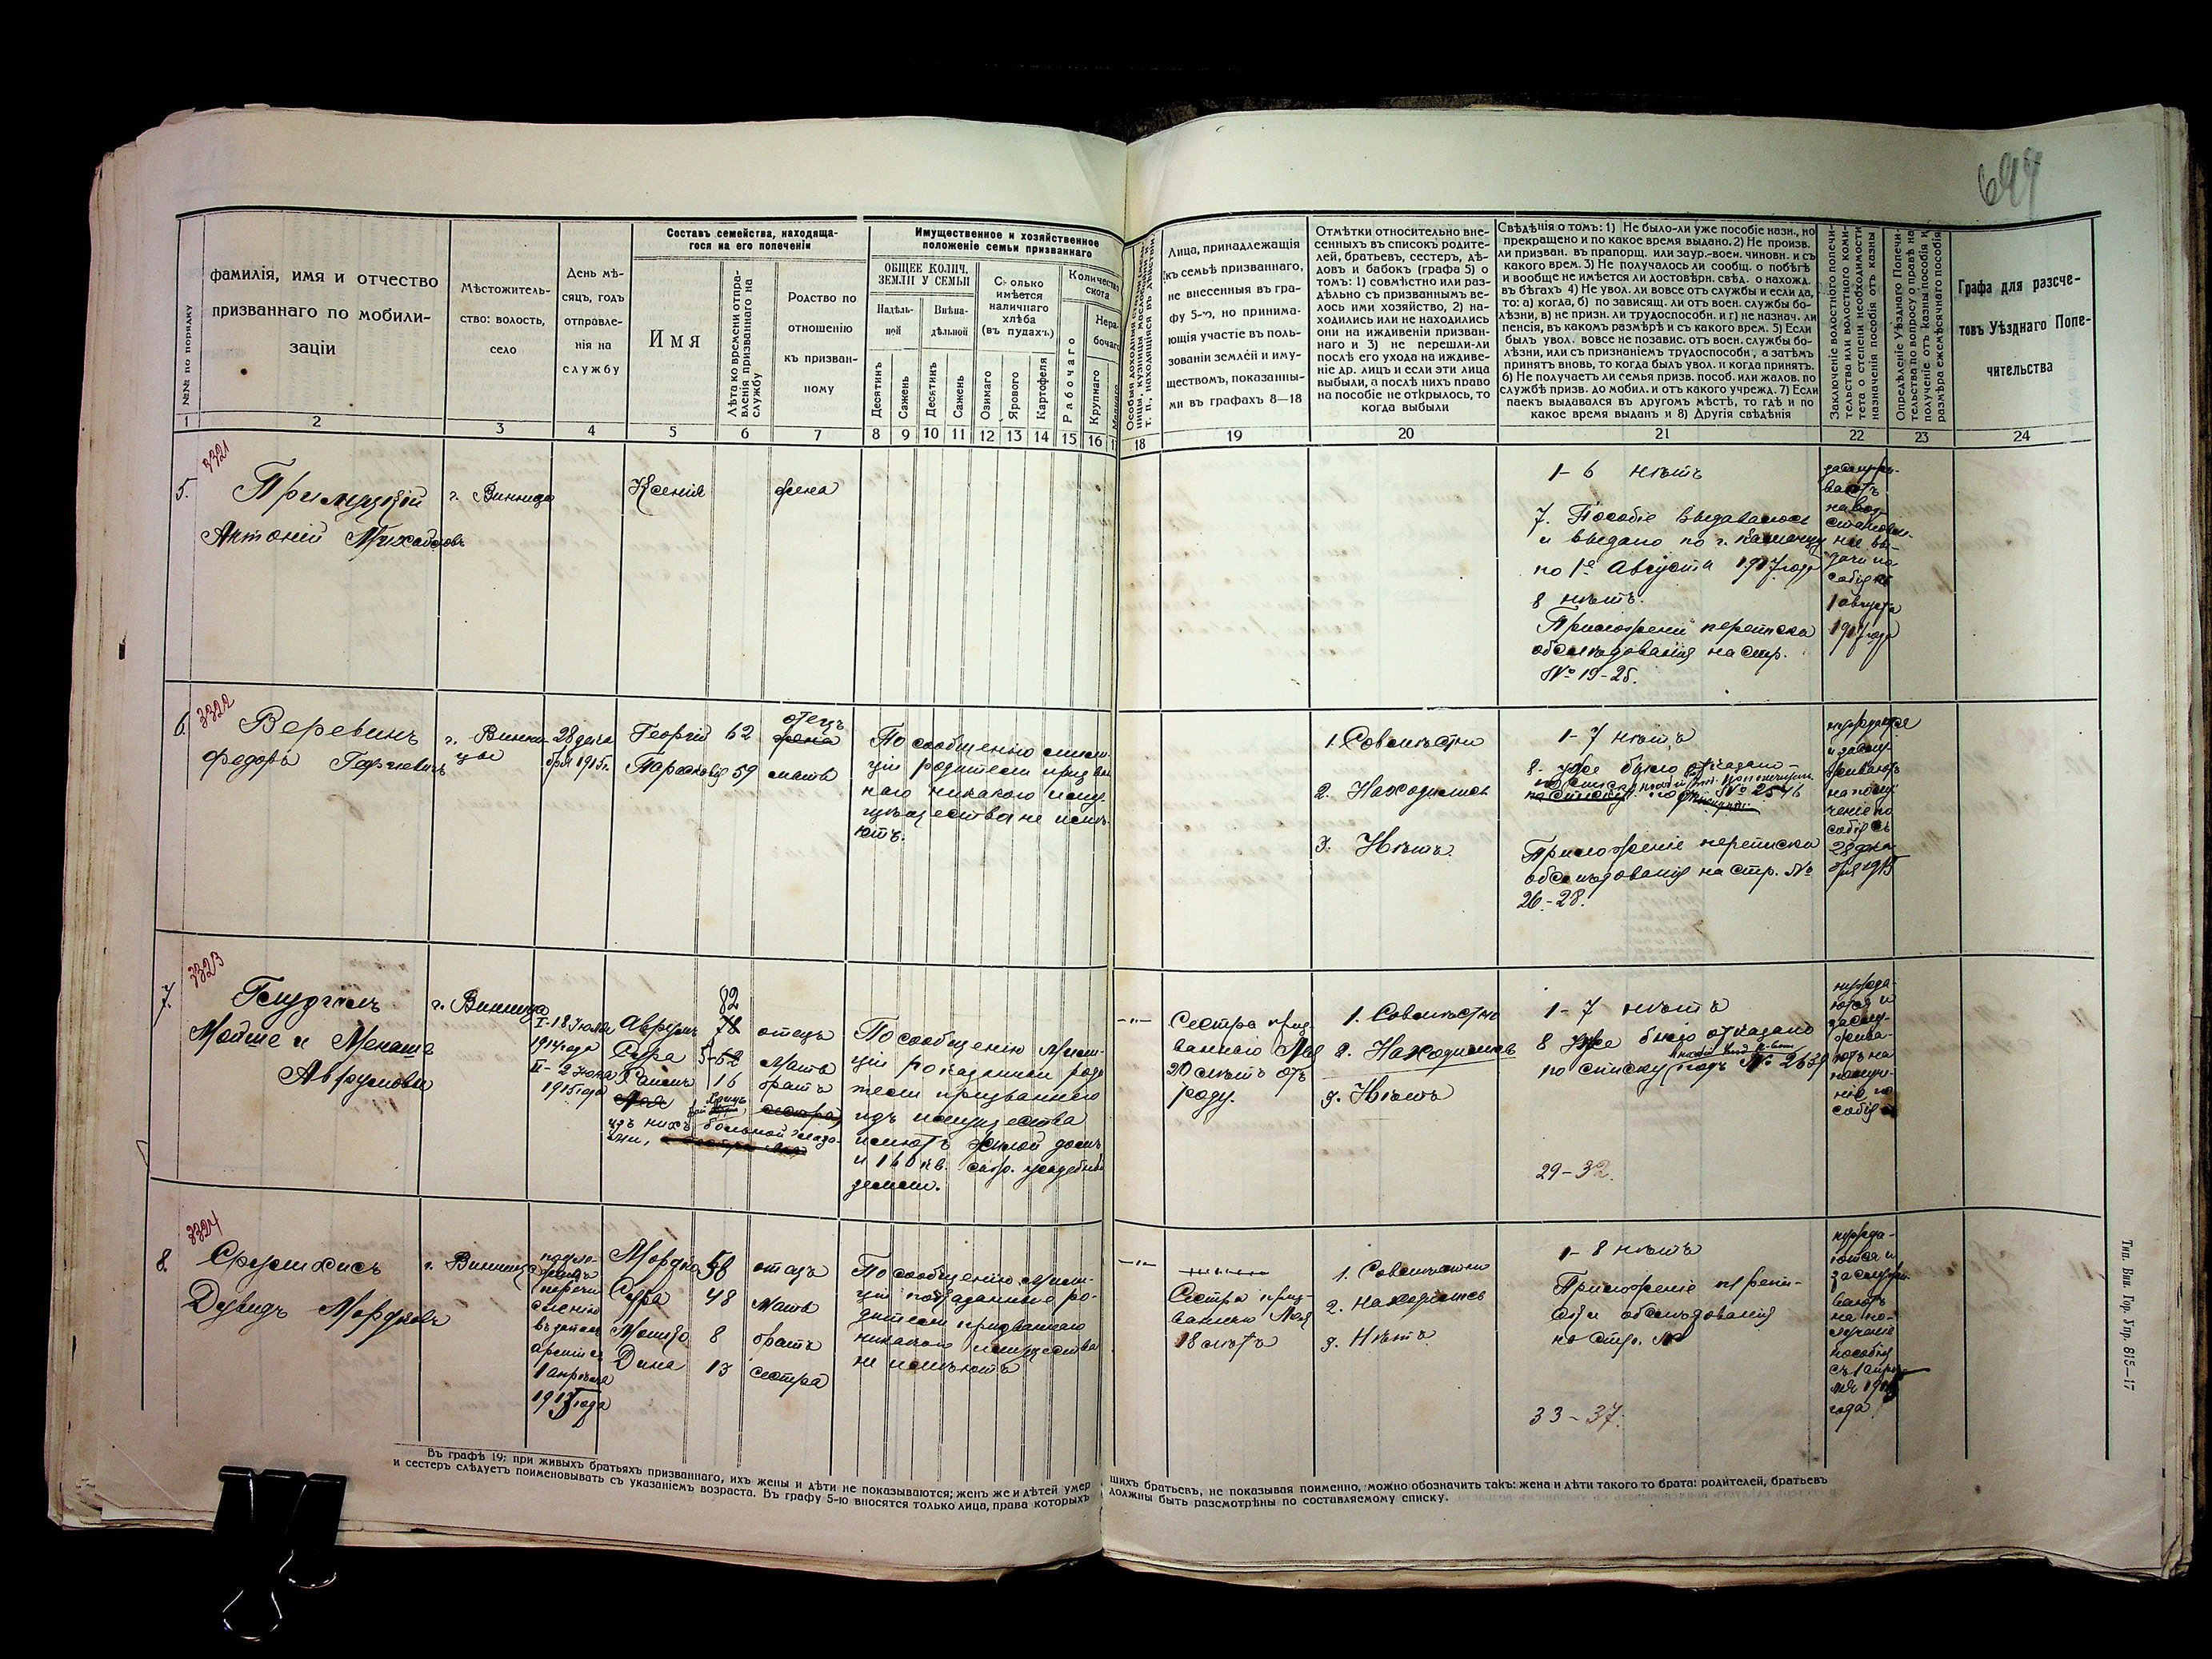 649
№№ по порядку
фамилія, имя и отчество
призваннаго по мобили-
заціи
Мѣстожитель-
ство: волость,
село
День мѣ-
сяцъ, годъ
отправле-
нія на
службу
Составъ семейства, находяща-
гося на его попеченіи
Имя
Лѣта ко времени отпра-
вленія призваннаго на
службу
Родство по
отношенію
къ призван-
ному
Имущественное и хозяйственное
положеніе семьи призваннаго
ОБЩЕЕ КОЛИЧ.
ЗЕМЛИ У СЕМЬИ
Надѣль-
ной
Внѣна-
дѣльной
Десятинъ
Сажень
Десятинъ
Сажень
Сколько
имѣется
наличнаго
хлѣба
(въ пудахъ)
Озимаго
Ярового
Картофеля
Количество
скота
Рабочаго
Нера-
бочаго
Крупнаго
Лица, принадлежащія
къ семьѣ призваннаго,
не внесенныя въ гра-
фу 5-ю, но принима-
ющія участіе въ поль-
зованіи землей и иму-
ществомъ, показанны-
ми въ графахъ 8—18
Отмѣтки относительно вне-
сенныхъ въ списокъ родите-
лей, братьевъ, сестеръ, дѣ-
довъ и бабокъ (графа 5) о
томъ: 1) совмѣстно или раз-
дѣльно съ призваннымъ ве-
лось ими хозяйство, 2) на-
ходились или не находились
они на иждивеніи призван-
наго и 3) не перешли-ли
послѣ его ухода на иждиве-
ніе др. лицъ и если эти лица
выбыли, а послѣ нихъ право
на пособіе не открылось, то
когда выбыли
Свѣдѣнія о томъ: 1) Не было-ли уже пособіе назн., но
прекращено и по какое время выдано. 2) Не произв.
ли призван. въ прапорщ. или заур.-воен. чиновн. и съ
какого врем. 3) Не получалось ли сообщ. о побѣгѣ
и вообще не имѣется ли достовѣрн. свѣд. о нахожд.
въ бѣгахъ 4) Не увол. ли вовсе отъ службы и если да,
то: а) когда, б) по зависящ. ли отъ воен. службы бо-
лѣзни, в) не призн. ли трудоспособн. и г) не назнач. ли
пенсія, въ какомъ размѣрѣ и съ какого врем. 5) Если
былъ увол. вовсе не позавис. отъ воен. службы бо-
лѣзни, или съ признаніемъ трудоспособн., а затѣмъ
принятъ вновь, то когда былъ увол. и когда принятъ.
6) Не получаетъ ли семья призв. пособ. или жалов. по
службѣ призв. до мобил. и отъ какого учрежд. 7) Если
паекъ выдавался въ другомъ мѣстѣ, то гдѣ и по
какое время выданъ и 8) Другія свѣдѣнія
Заключеніе волостного попечи-
тельства или волостного коми-
тета о степени необходимости
назначенія пособія отъ казны
Опредѣленіе Уѣзднаго Попечи-
тельства по вопросу о правѣ на
полученіе отъ казны пособія и
размѣра ежемѣсячнаго пособія
Графа для разсче-
товъ Уѣзднаго Попе-
чительства
1 2 3 4 5 6 7 8 9 10 11 12 13 14 15 16 18 19 20 21 22 23 24
3321
5.
Антоній Михайловъ
г. Винница
Ксенія
жена
1-6 нѣтъ
7. Пособіе выдавалось
и выдано по г.
по 1е Августа 1917 года
8 нѣтъ.
Приложеніе переписка
обслѣдованія на стр.
№ 19-25.
1 августа
1917 года
3322
6.
Веревинъ
Федоръ Георгіевичъ
г. Винни-
цы
28 дека
бря 1915 г.
Георгій 62 отецъ
Парасковія 59 мать
По сообщенію мили-
ціи родители призван
наго никакого иму-
щества не имѣ-
ютъ.
1. Совмѣстно
2. Находились
3. Нѣтъ.
1-7 нѣтъ
8. уже было отказано
№ 2546
Приложеніе переписки
обслѣдованія на стр. №
26-28.
3323
7.
Мойше и Менаше
Аврумовы
г. Винница
I-18 Іюля
1914 года
1915 года
82
Аврумъ 78 отецъ
Сура 52 мать
16 братъ
изъ нихъ больной глаза-
ми,
По сообщенію мили-
ціи
тели призваннаго
изъ имущества
имѣютъ жилой домъ
и 160 кв. саж. усадебной
земли.
Сестра приз-
ваннаго
20 лѣтъ отъ
роду.
1. Совмѣстно
2. Находились
3. Нѣтъ
1-7 нѣтъ
8 Уже было отказано
по списку подъ № 2639
29-32.
3324
8.
Дувидъ Мордковъ
г. Винница
1 апрѣля
года
Мордко 58 отецъ
Сура 48 мать
Мошко 8 братъ
Дина 13 сестра
По сообщенію мили-
ціи ро-
дители призваннаго
никакого имущества
не имѣютъ
Сестра приз-
18 лѣтъ
1. Совмѣстно
2. Находились
3. Нѣтъ.
1-8 нѣтъ
Приложеніе
обслѣдованія
на стр. №
33-37.
года
Въ графѣ 19; при живыхъ братьяхъ призваннаго, ихъ жены и дѣти не показываются; женъ же и дѣтей умер
шихъ братьевъ, не показывая поименно, можно обозначить такъ: жена и дѣти такого то брата: родителей, братьевъ
и сестеръ слѣдуетъ поименовывать съ указаніемъ возраста. Въ графу 5-ю вносятся только лица, права которыхъ
должны быть разсмотрѣны по составляемому списку.
Тип. Вин. Гор. Упр. 815—17